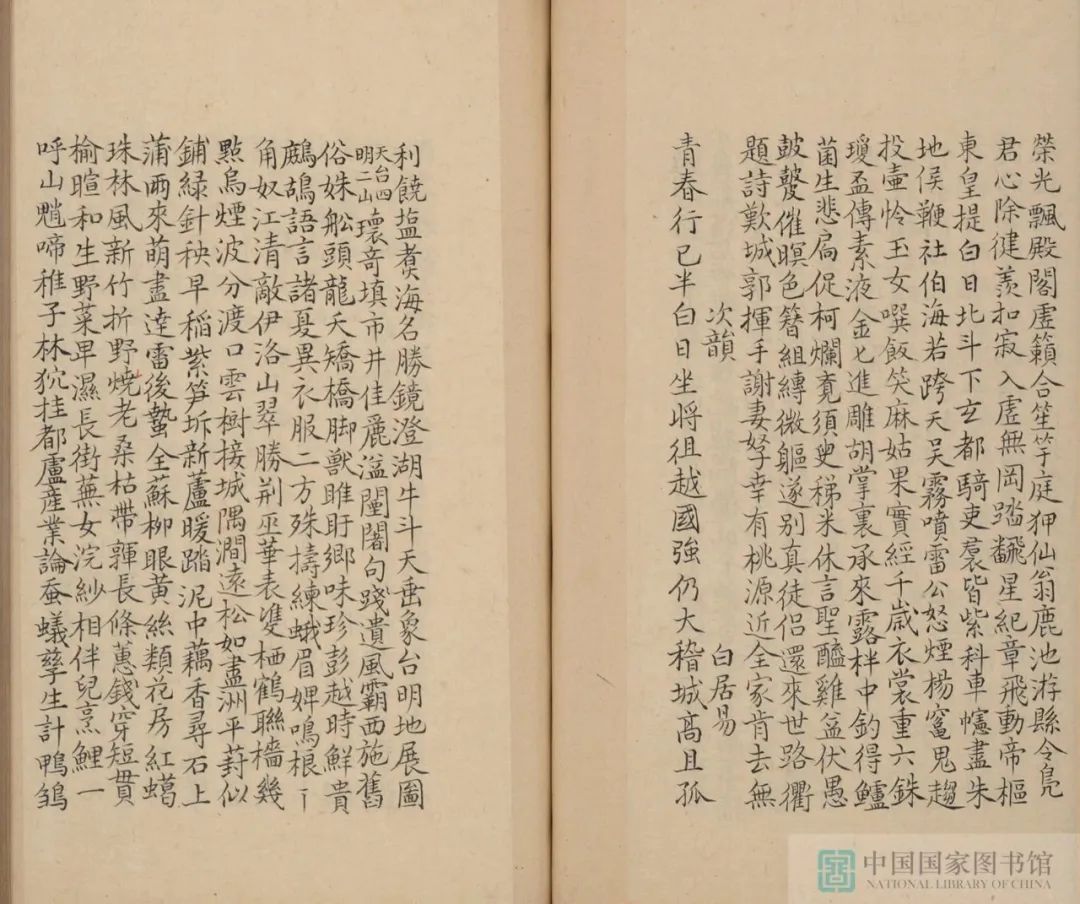 榮光飄殿閣虛籟合笙竽庭狎仙翁鹿池游縣令鳧
君心除健羨扣寂入虛無岡蹋翻星紀章飛動帝樞
東皇提白日北斗下玄都騎吏裙皆紫科車幰盡朱
地侯鞭社伯海若跨天吳霧噴雷公怒煙楊竈鬼趨
投壺怜玉女噀飯笑麻姑果實經千歲衣裳重六銖
瓊盃傳素液金匕進雕胡掌裏承來露柈中釣得鱸
菌生悲局促柯爛竟須臾稊米休言聖醯雞益伏愚
鼓鼙催暝色簪組縛微軀遂別真徒侶還來世路衢
題詩歎城郭揮手謝妻孥幸有桃源近全家肯去無
次韻 白居易
青春行已半白日坐將徂越國強仍大稽城高且孤
利饒塩煑海名勝鏡澄湖牛斗天垂象台明地展圖
天台四明二山瓌奇填市井佳麗溢闉闍句踐遺風霸西施舊
俗姝舩頭龍夭矯橋脚獸睢盱鄉味珍彭越時鮮貴
鷓鴣語言諸夏異衣服一方殊擣練蛾眉婢鳴榔丫
角奴江清敵伊洛山翠勝荊巫華表雙栖鶴聯檣幾
點烏煙波分渡口雲樹接城隅澗遠松如畫洲平葑似
鋪綠針秧早稻紫笋坼新蘆暖踏泥中藕香尋石上
蒲雨來萌盡達雷後蟄全蘇柳眼黃絲類花房紅蠟
珠林風新竹折野燒老桑枯帶嚲長條蕙錢穿短貫
榆暄和生野菜卑濕長街蕪女浣紗相伴兒烹鯉一
呼山魈啼稚子林狖挂都盧產業論蚕蟻孳生計鴨鶵
中国国家图书馆
NATIONAL LIBRARY OF CHINA